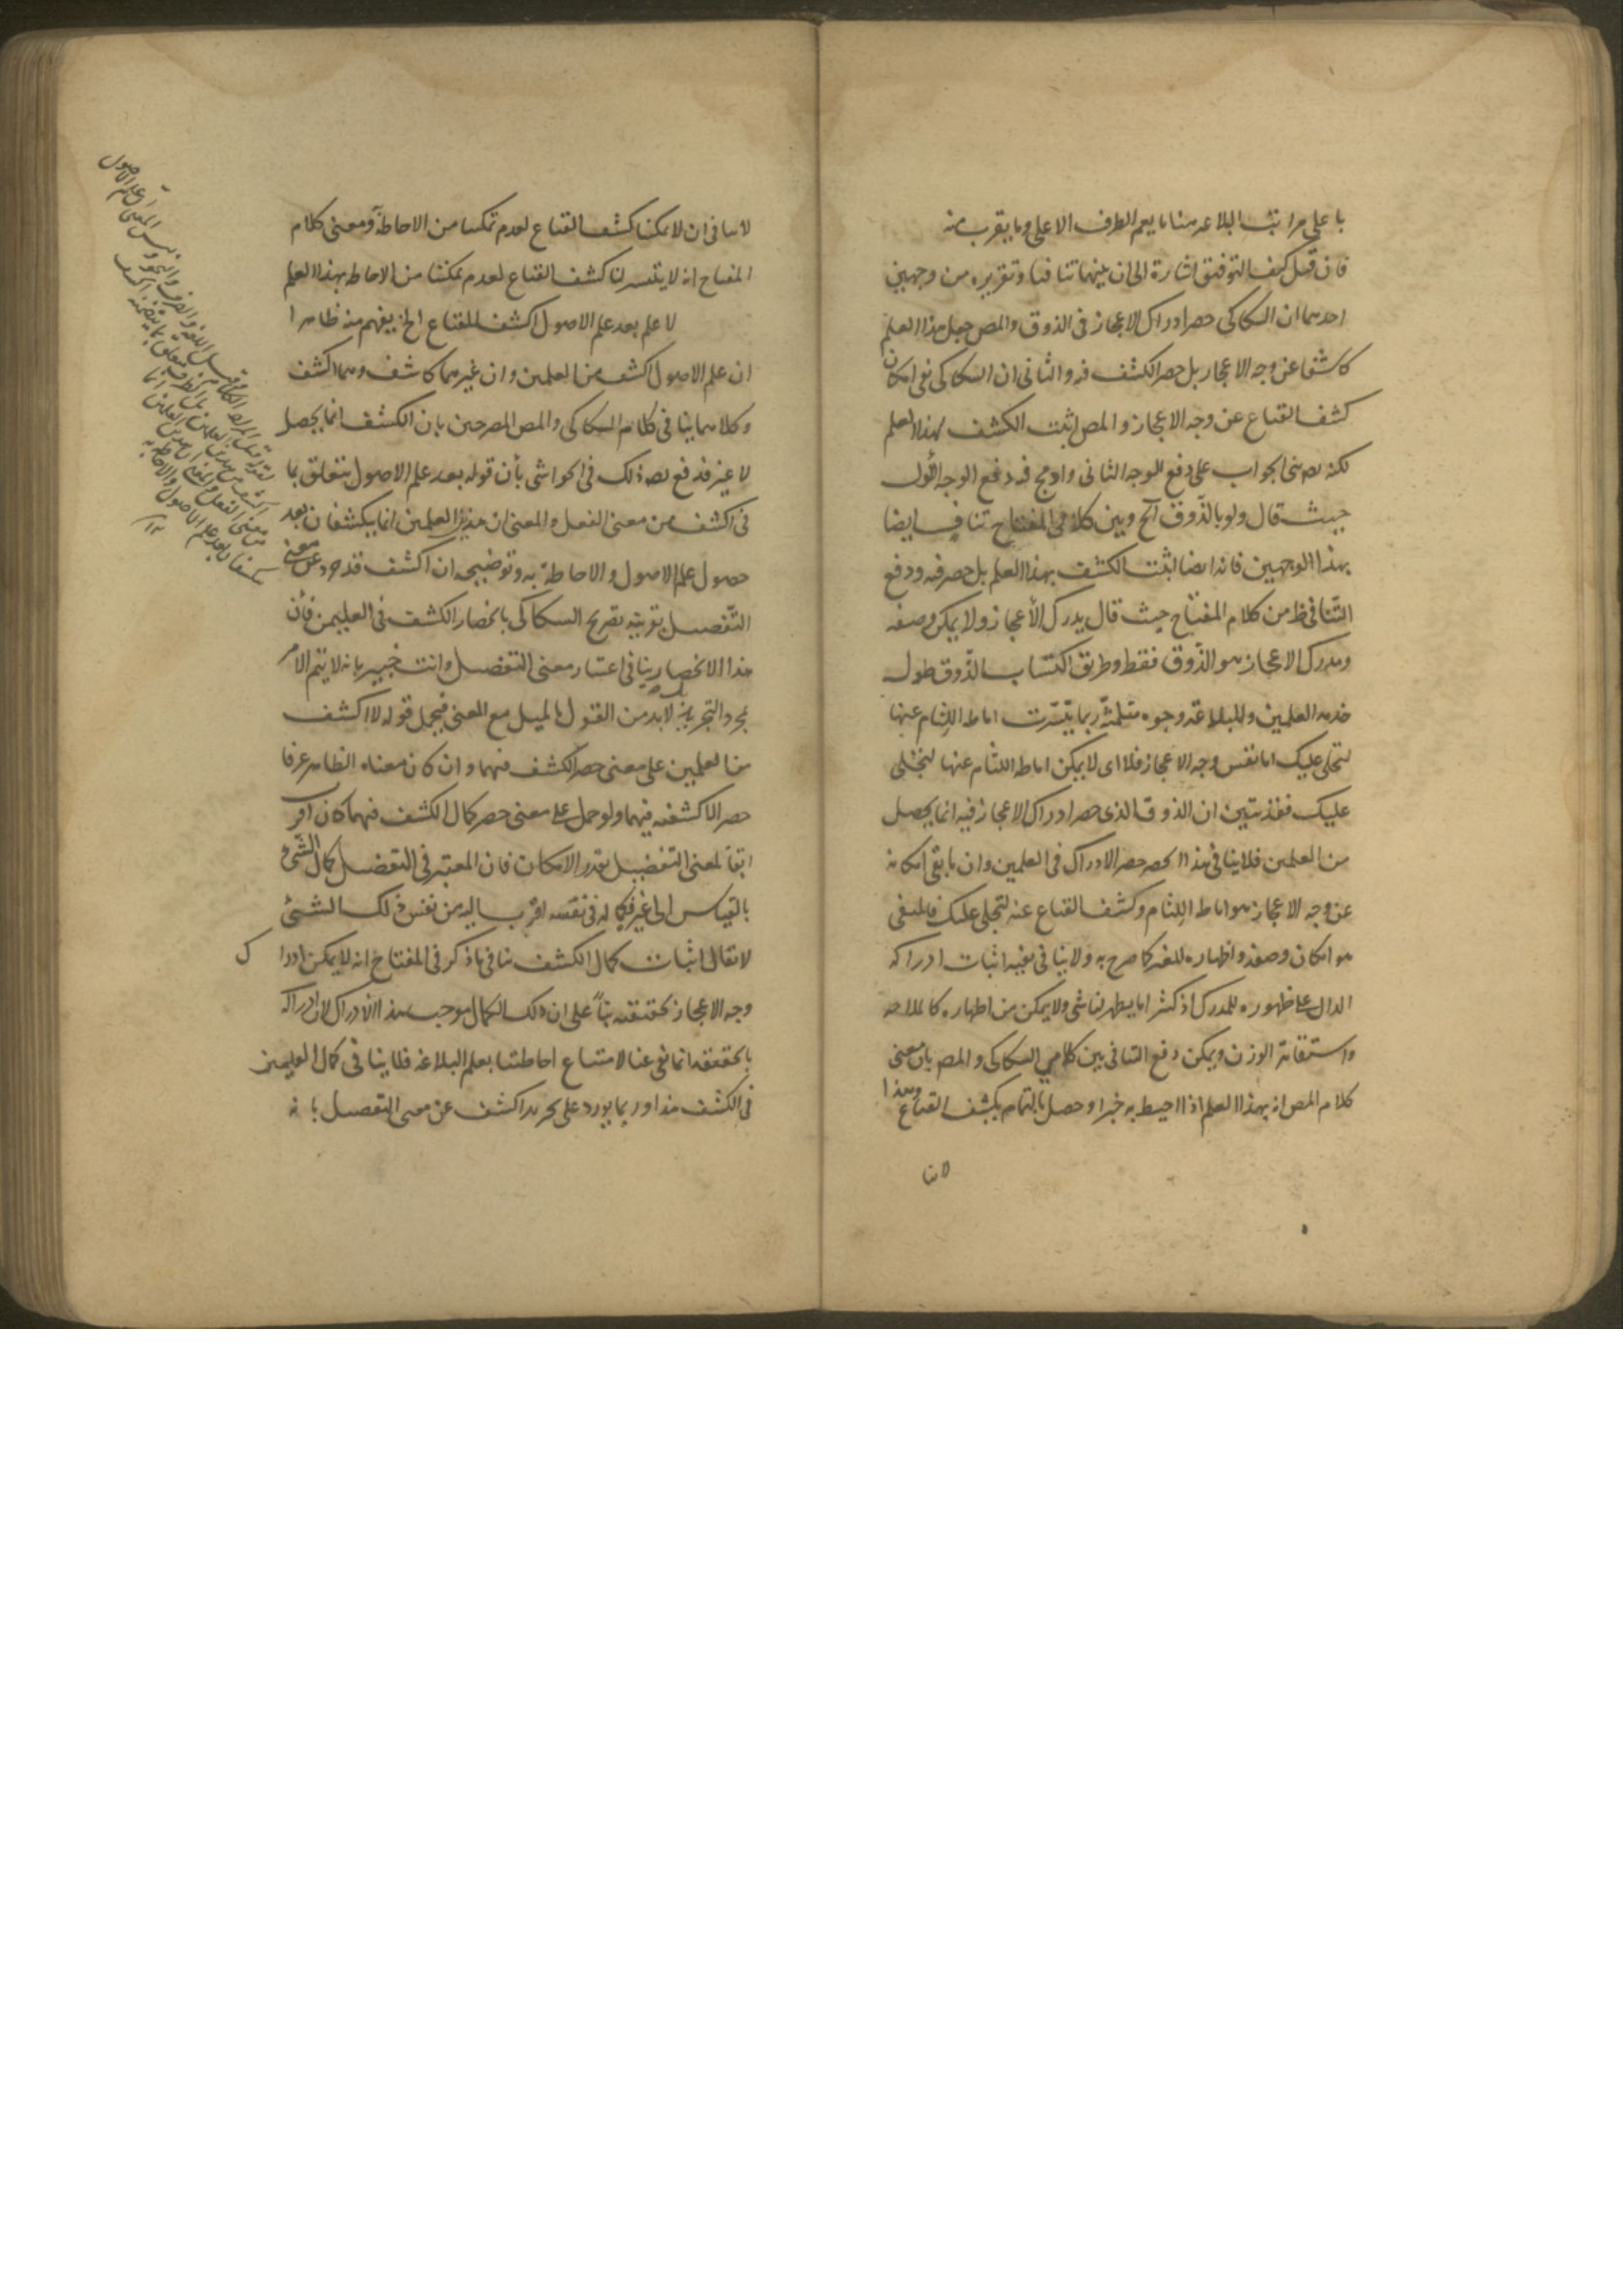 باعلى مراتب البلاغة هنا ما يعم الطرف الاعلى وما يقرب منه
فان قيل كيف التوفيق اشارة الى ان بينهما تنافيا وتقريره من وجهين
احدهما ان السكاكى حصر ادراك الاعجاز فى الذوق والمص جعل هذا العلم
كاشفا عن وجه الاعجاز بل حصر الكشف فيه والثانى ان السكاكى نفى امكان
كشف القناع عن وجه الاعجاز والمص اثبت الكشف بهذا العلم
لكنه بنى الجواب على دفع الوجه الثانى وادمج فيه دفع الوجه الاول
حيث قال ولو بالذوق آلخ وبين كلامى المفتاح تناف ايضا
بهذا الوجهين فانه ايضا اثبت الكشف بهذا العلم بل حصر فيه ودفع
التنافى ظ من كلام المفتاح حيث قال يدرك الاعجاز ولا يمكن وصفه
ومدرك الاعجاز هو الذوق فقط وطريق اكتساب الذوق طول
خدمة العلمين وللبلاغة وجوه متلثمة ربما تيسرت اماطة اللثام عنها
لتجلى عليك اما نفس وجه الاعجاز فلا اى لا يمكن اماطة اللثام عنها لتجلى
عليك فقد تبين ان الذوق الذى حصر ادراك الاعجاز فيه انما يحصل
من العلمين فلا ينافى هذا الحصر حصر الادراك فى العلمين وان ما نفى امكانه
عن وجه الاعجاز هو اماطة اللثام وكشف القناع عنه لتجلى عليك فالمنفى
هو امكان وصفه واظهاره للغير كما صرح به ولا ينافى نفيه اثبات ادراكه
الدال على ظهوره للمدرك اذ كثيرا ما يظهر لنا شى ولا يمكن من اظهاره كالملاحة
واستقامة الوزن ويمكن دفع التنافى بين كلامى السكاكى والمص بان معنى
كلام المص انه بهذا العلم اذا احيط به خبرا وحصل بالتمام يكشف القناع وهذا
لا ينا
لا ينافى ان لا يمكننا كشف القناع لعدم تمكننا من الاحاطة ومعنى كلام
المفتاح انه لا يتيسر لنا كشف القناع لعدم تمكننا من الاحاطة بهذا العلم
لا علم بعد علم الاصول اكشف للقناع الخ يفهم منه ظاهرا
ان علم الاصول اكشف من العلمين وان غيرهما كاشف وهما اكشف
وكلاهما ينافى كلام السكاكى والمص المصرحين بان الكشف انما يحصل
لا غير فدفع ذلك فى الحواشى بأن قوله بعد علم الاصول متعلق بما
فى اكشف من معنى الفعل والمعنى ان هذين العلمين انما يكشفان بعد
حصول علم الاصول والاحاطة به وتوضيحه ان اكشف قد جرد عن معنى
التفصيل بقرينة تصريح السكاكى بانحصار الكشف فى العلمين فأن
هذا الانحصار ينافى اعتبار معنى التفضيل وانت خبير بانه لا يتم الامر
بمجرد التجريد بل لابد من القول بالميل مع المعنى فيحمل قوله لا اكشف
من العلمين على معنى حصر الكشف فيهما وان كان معناه الظاهر عرفا
حصر الاكشفية فيهما ولو حمل على معنى حصر كمال الكشف فيهما كان اقرب
ابقاء لمعنى التفضيل بقدر الامكان فان المعتبر فى التفضيل كمال الشئ
بالقياس الى غيره فكماله فى نفسه اقرب اليه من نفس ذلك الشئ
لا يقال اثبات كمال الكشف ينافى ما ذكر فى المفتاح انه لا يمكن ادراك
وجه الاعجاز بحقيقته بناء على ان ذلك الكمال موجب هذا الادراك لان ادراكه
بالحقيقة انما نفى عنا لامتناع احاطتنا بعلم البلاغة فلا ينافى كمال العلمين
فى الكشف هذا وربما يورد على تجريد اكشف عن معنى التفضيل بانه